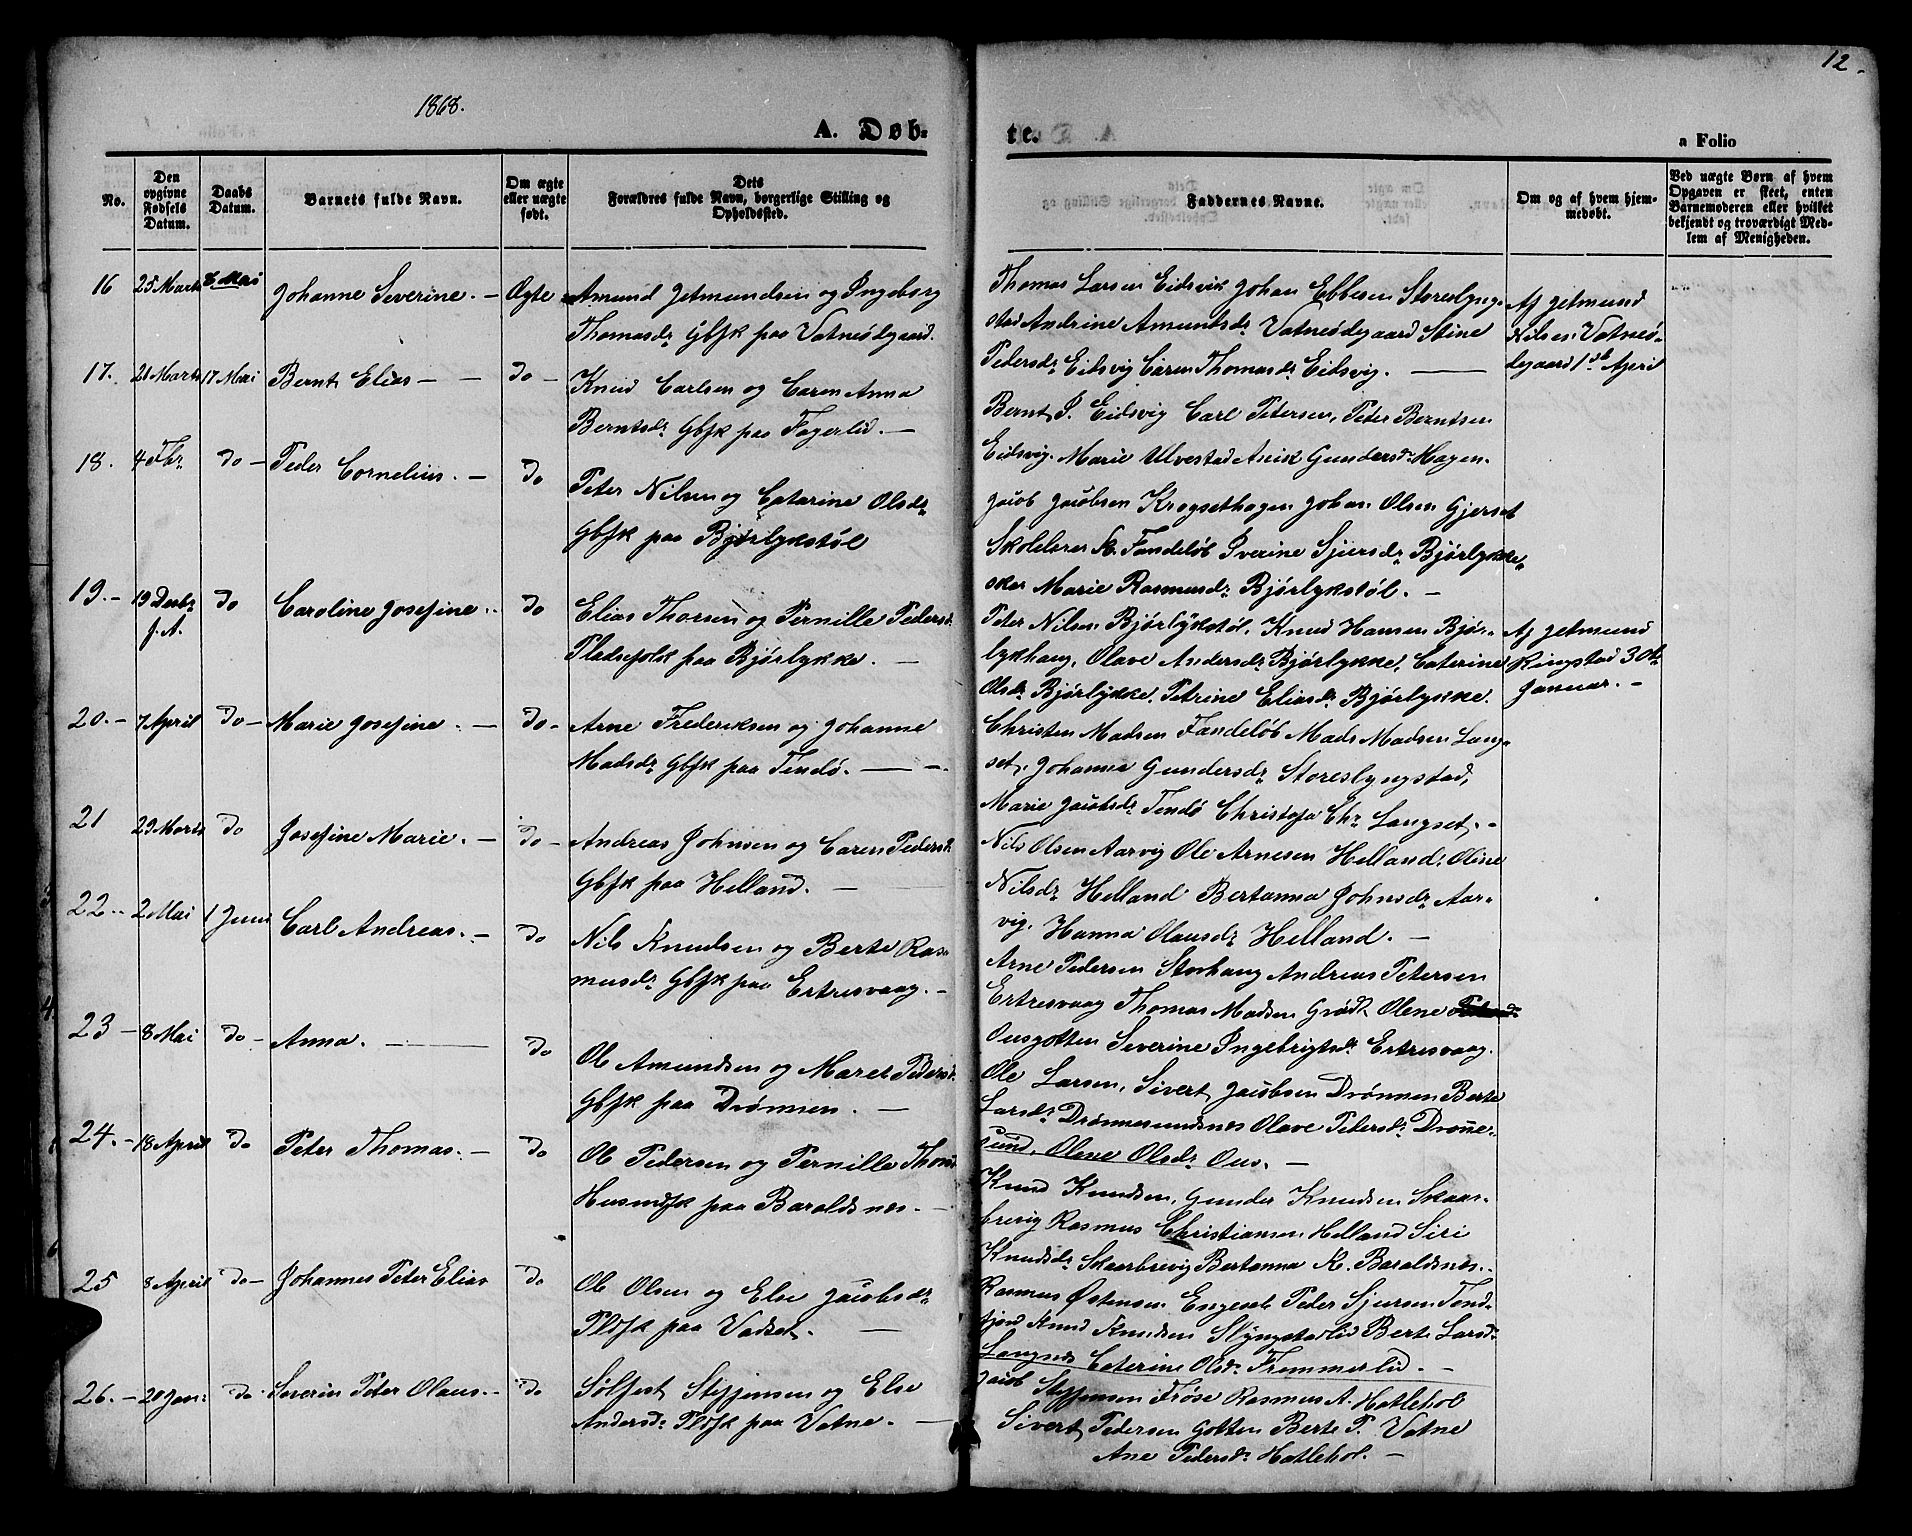 1868.
12.
A. Døb-
te.
a Folio
No.
Den opgivne Fødsels Datum.
Daabs Datum.
Barnets fulde Navn.
Om ægte eller uægte født.
Dets Forældres fulde Navn, borgerlige Stilling og Opholdssted.
Faddernes Navne.
Om og af hvem hjemmedøbt.
Ved uægte Børn af hvem Opgaven er skeet, enten Barnemoderen eller hvilket bekjendt og troværdigt Medlem af Menigheden.
16 25 Marts 8 Mai Johanne Severine. – Ægte Amund Jetmundsen og Ingeborg
Thomasdr Gbfk paa Vatneødegaard.
Thomas Larsen Eidsvik Johan Ebbesen Storeslyng-
stad Andrine Amundsdr Vatneødegaard Stine
Pedersdr Eidsvig Caren Thomasdr Eidsvig. —
Af Jetmund
Nilsen Vatneø-
degaard 1ste April
17. 21 Marts 17 Mai Bernt Elias – – Do – Knud Carlsen og Caren Anna
Berntsdr Gbfk paa Fagerlid. —
Bernt P. Eidsvig Carl Petersen, Peter Berntsen
Eidsvig. Marie Ulvestad Anik Gundersdr Hagen.
18. 4 Fbr Do – Peder Cornelius. – Do Peter Nilsen og Catarine Olsdr
Gbfk paa Bjørlykstøl
Jacob Jacobsen Krogsethagen Johan Olsen Gjerset
Skolelærer K. Fandeløb Iverine Sjersdr Bjørlykke-
Marie Rasmusdr Bjørlykstøl. —
19. – 19 Decbr f. A. Do Caroline Josefine. Do Elias Thorsen og Pernille Pedersdr
Pladsefolk paa Bjørlykke. —
Peter Nilsen Bjørlykstøl, Knud Hansen Bjør-
lykhaug, Olave Andersdr Bjørlykke, Caterine
Olsdr Bjørlykke, Petrine Eliasdr Bjørlykke.
Af Jetmund
Ringstad 30te
Januar. –
20. – 7 April Do – Marie Josefine. – Do – Arne Frederiksen og Johanne
Madsdr Gbfk paa Tendø. — –
Christen Madsen Fandeløb Mads Madsen Lang-
set, Johanna Gundersdr Storeslyngstad,
Marie Jacobsdr Tendø Christofa Chr Langset. –
21 29 Marts Do Josefine Marie. – Do – Andreas Johnsen og Caren Pedersdr
Gbfk paa Helland. —
Nils Olsen Aarvig Ole Arnesen Helland, Oline
Nilsdr Helland Bertanna Johnsdr Aar-
vig. Hanna Olausdr Helland. —
22. – 2 Mai 1 Juni Carl Andreas. – Do Nils Knudsen og Berte Ras-
musdr Gbfk paa Ertresvaag. –
Arne Pedersen Storhaug Andreas Petersen
Ertresvaag Thomas Madsen Olene
Ousgotten Severine Ingebrigtsdr Ertresvaag.
23 – 8 Mai Do – Anna. — Do Ole Amundsen og Maret Pedersdr
Gbfk paa Drønnen. —
Ole Larsen, Sivert Jacobsen Drønnen Berte
Larsdr Drønnesundnes Olave Pedersdr Drønne-
sund, Olene Olsdr Ous. —
24. – 18 April Do Peter Thomas. – Do Ole Pedersen og Pernille Thomasdr
Husmfk paa Baraldsnes. –
Knud Knudsen, Gunder Knudsen Skaar-
brevig Rasmus Christiansen Helland Siri
Knudsdr Skaarbrevig Bertanna K. Baraldsnes. –
25 8 April Do – Johannes Peter Elias Do Ole Olsen og Else Jacobsdr
Pldfk paa Vadset. —
Rasmus Østensen Engeset Peder Sjursen Tend-
fjord Knud Knudsen Slyngstadlid Berte Larsdr
Langnes Caterine Olsdr Frommerlid. –
26. – 20 Jan: Do Severin Peter Olaus. – Do Sølfest Steffensen og Else
Andersdr Pldfk paa Vatne. —
Jacob Steffensen Frøse Rasmus A. Hatlehol
Sivert Pedersen Gotten Berte P. Vatne
Ane Pedersdr Hatlehol. —